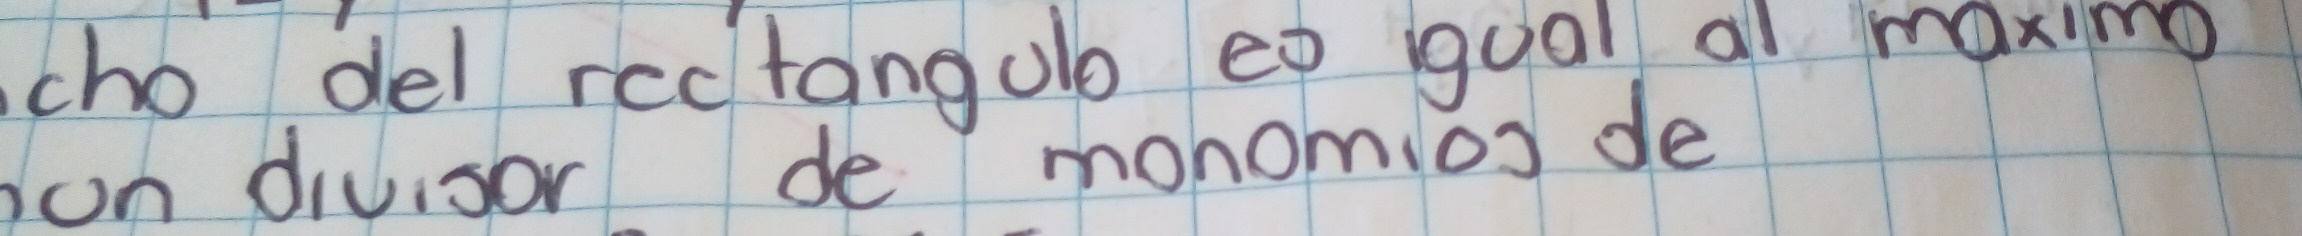 cho del rectangulo es igual al maximo
un divisor de monomios de